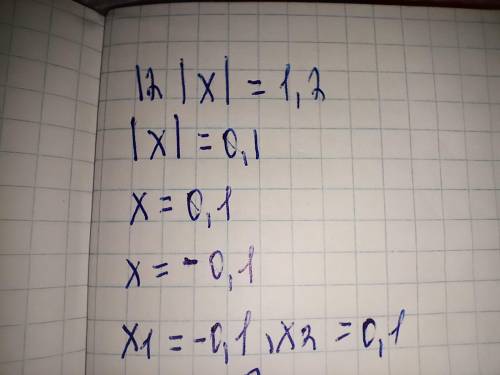 12 |x| = 1,2
|x| = 0,1
x = 0,1
x = - 0,1
x1 = -0,1, x2 = 0,1